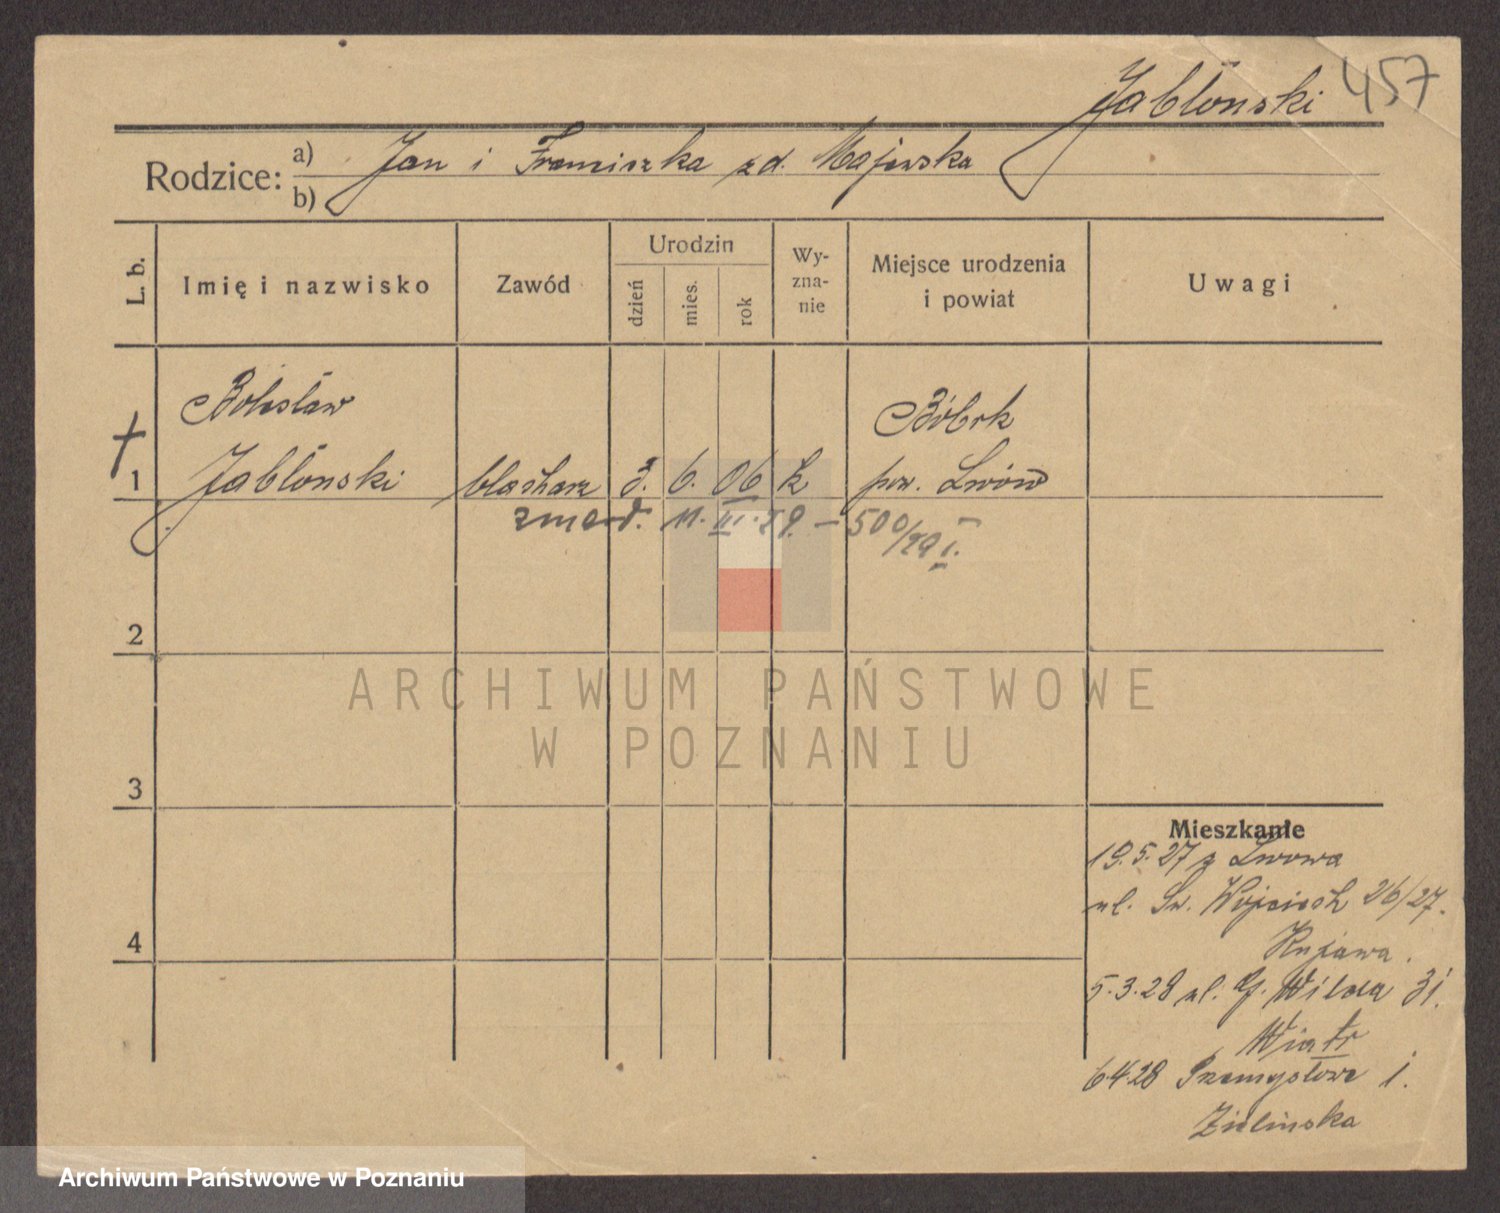 457
Jabłoński
Rodzice: a) Jan i Franciszka zd. Majewska
b)
L. b.
Imię i nazwisko
Zawód
Urodzin
dzień
mies.
rok
Wy-
zna-
nie
Miejsce urodzenia
i powiat
Uwagi
Bolesław
Bóbrk
† 1 Jabłoński blacharz 3. 6. 06 k pow. Lwów
zmarł. 11. III. 29. – 500/29 I.
2
3
4
Mieszkanie
19.5.27 z Lwowa
ul. Św. Wojciech 26/27.
Kujawa.
5.3.28 ul. G. Wilda 31.
Wiatr
6.4.28 Przemysłowa 1.
Zielinska
ARCHIWUM PAŃSTWOWE
W POZNANIU
Archiwum Państwowe w Poznaniu